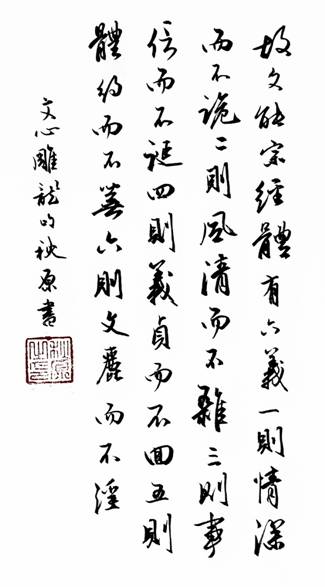 故文能宗經體有六義一則情深
而不詭二則風清而不雜三則事
信而不誕四則義貞而不回五則
體約而不蕪六則文麗而不淫
文心雕龍句原書